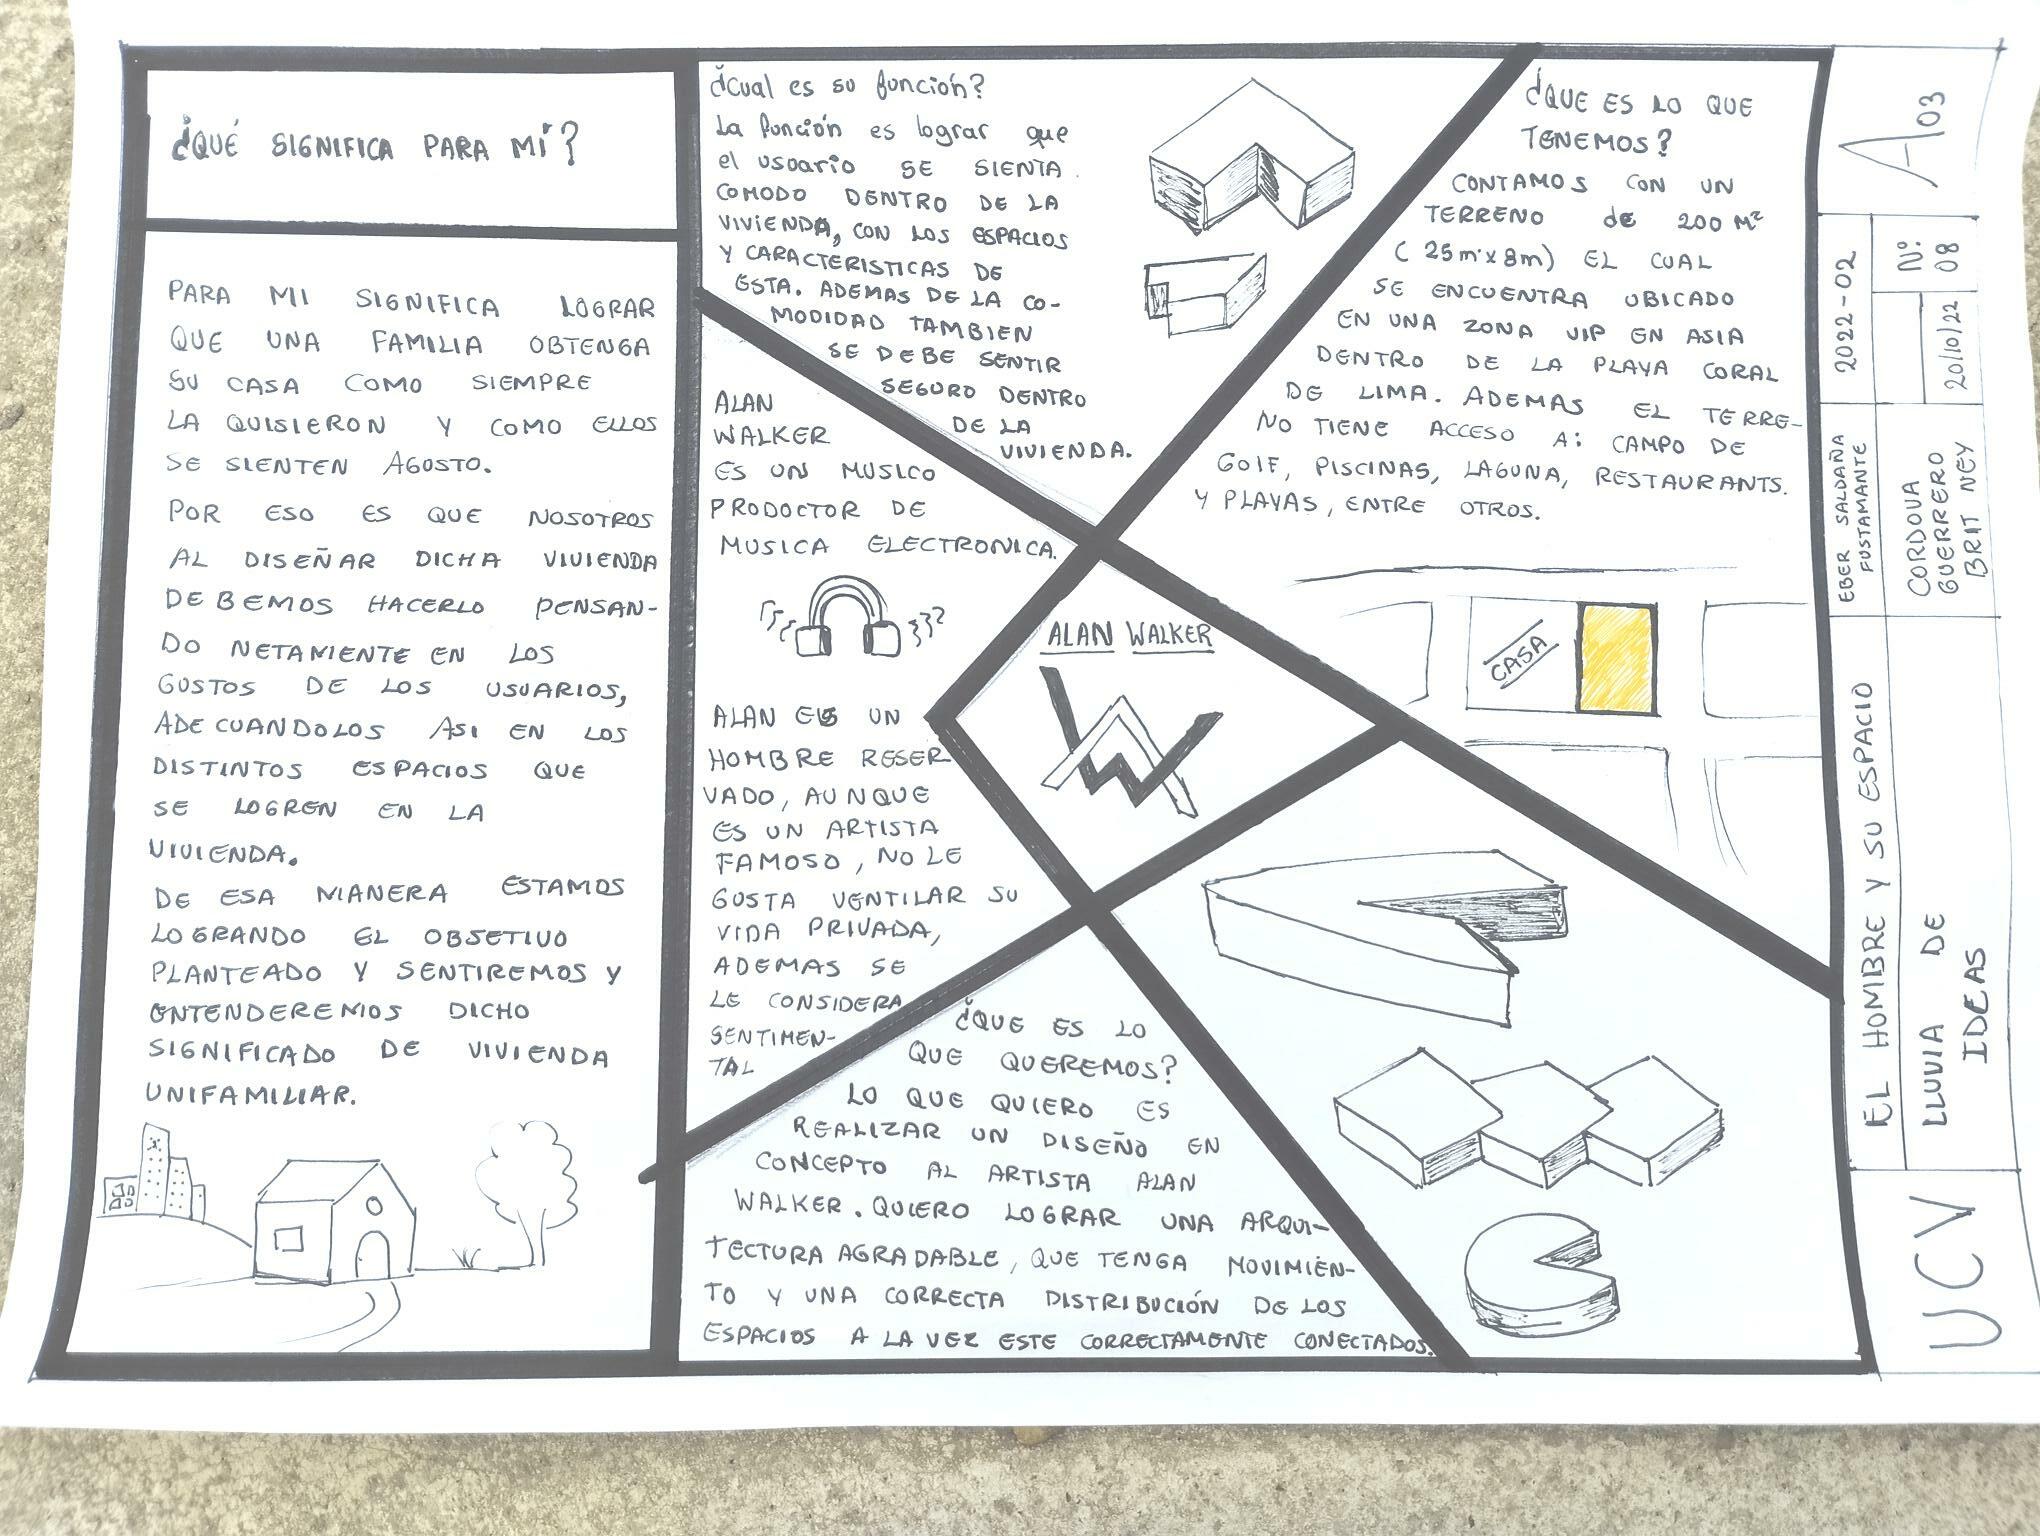 ¿QUÉ SIGNIFICA PARA MÍ?
PARA MI SIGNIFICA LOGRAR
QUE UNA FAMILIA OBTENGA
SU CASA COMO SIEMPRE
LA QUISIERON Y COMO ELLOS
SE SIENTEN AGOSTO.
POR ESO ES QUE NOSOTROS
AL DISEÑAR DICHA VIVIENDA
DEBEMOS HACERLO PENSAN-
DO NETAMENTE EN LOS
GUSTOS DE LOS USUARIOS,
ADECUANDOLOS ASI EN LOS
DISTINTOS ESPACIOS QUE
SE LOGREN EN LA
VIVIENDA.
DE ESA MANERA ESTAMOS
LOGRANDO EL OBJETIVO
PLANTEADO Y SENTIREMOS Y
ENTENDEREMOS DICHO
SIGNIFICADO DE VIVIENDA
UNIFAMILIAR.
¿Cual es su función?
La función es lograr que
el usuario SE SIENTA
COMODO DENTRO DE LA
VIVIENDA, CON LOS ESPACIOS
Y CARACTERISTICAS DE
ESTA. ADEMAS DE LA CO-
MODIDAD TAMBIEN
SE DEBE SENTIR
SEGURO DENTRO
DE LA
VIVIENDA.
ALAN
WALKER
ES UN MUSICO
PRODOCTOR DE
MUSICA ELECTRONICA.
ALAN ES UN
HOMBRE RESER
VADO, AUNQUE
ES UN ARTISTA
FAMOSO, NO LE
GUSTA VENTILAR SU
VIDA PRIVADA,
ADEMAS SE
LE CONSIDERA
SENTIMEN-
TAL
ALAN WALKER
¿QUE ES LO QUE
TENEMOS?
CONTAMOS CON UN
TERRENO de 200 M²
(25m x 8m) EL CUAL
SE ENCUENTRA UBICADO
EN UNA ZONA VIP EN ASIA
DENTRO DE LA PLAYA CORAL
DE LIMA. ADEMAS EL TERRE-
NO TIENE ACCESO A: CAMPO DE
GOLF, PISCINAS, LAGUNA, RESTAURANTS.
Y PLAYAS, ENTRE OTROS.
CASA
¿QUE ES LO
QUE QUEREMOS?
LO QUE QUIERO ES
REALIZAR UN DISEÑO EN
CONCEPTO AL ARTISTA ALAN
WALKER. QUIERO LOGRAR UNA ARQUI-
TECTURA AGRADABLE, QUE TENGA MOVIMIEN-
TO Y UNA CORRECTA DISTRIBUCIÓN DE LOS
ESPACIOS A LA VEZ ESTE CORRECTAMENTE CONECTADOS.
UCV
EL HOMBRE Y SU ESPACIO
LLUVIA DE
IDEAS
EBER SALDAÑA
FUSTAMANTE
CORDOVA
GUERRERO
BRIT NEY
2022-02
20/10/22
N°:
08
A03